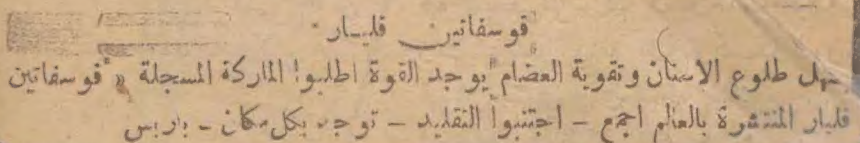 "فوسفاتين فليار"
يسهل طلوع الاسنان وتقوية العضام "يوجد القوة اطلبوا الماركة المسجلة « فوسفاتين
فليار المنتشرة بالعالم اجمع – اجتنبوا التقليد – توجد بكل مكان – باريس